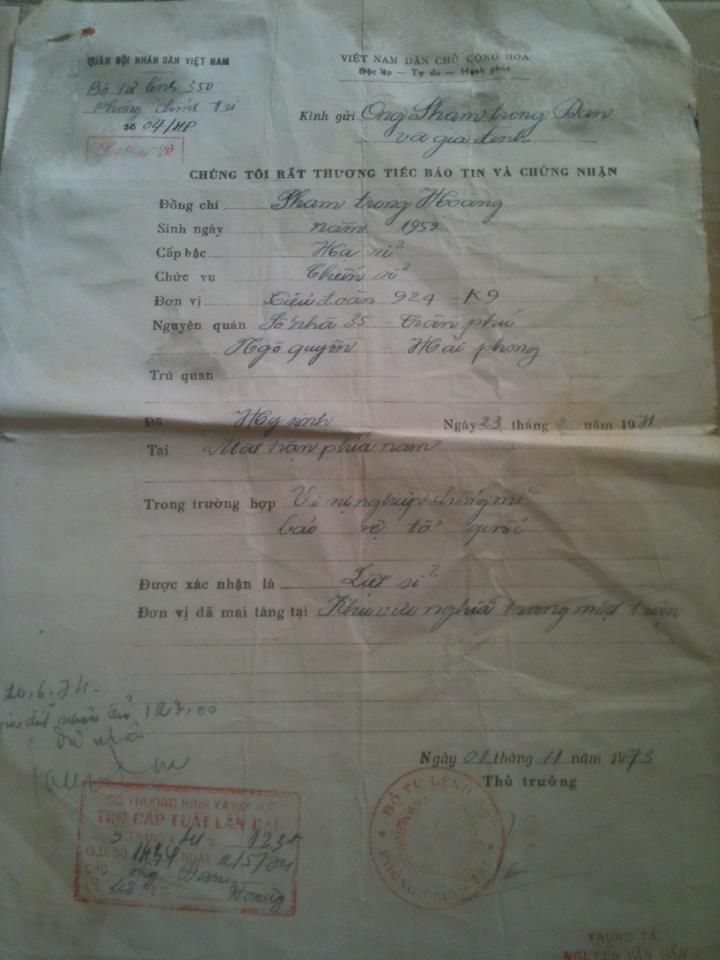 QUÂN ĐỘI NHÂN DÂN VIỆT NAM
Bộ tư lệnh 350
Phòng chính trị
Số 04/HP
VIỆT NAM DÂN CHỦ CỘNG HÒA
Độc lập — Tự do — Hạnh phúc
Kính gửi Ông Phạm trọng Đan
và gia đình
CHÚNG TÔI RẤT THƯƠNG TIẾC BÁO TIN VÀ CHỨNG NHẬN
Đồng chí Phạm trọng Hoàng
Sinh ngày năm 1952
Cấp bậc Hạ sĩ
Chức vụ Chiến sĩ
Đơn vị Tiểu đoàn 924 - K9
Nguyên quán Số nhà 35 - Trần phú
Ngô quyền - Hải phong
Trú quán
Đã Hy sinh Ngày 23 tháng 2 năm 1971
Tại Mặt trận phía nam
Trong trường hợp Vì sự nghiệp chống mĩ
bảo vệ tổ quốc
Được xác nhận là Liệt sĩ
Đơn vị đã mai táng tại Khu vực nghĩa trang mặt trận
20.6.74.
gia đình nhận đủ 123,00
Ngày 01 tháng 11 năm 1973
Thủ trưởng
SỞ THƯƠNG BINH XÃ HỘI H.P
TRỢ CẤP TUẤT LẦN ĐẦU
3 THÁNG
Q.Đ. SỐ 1434 NGÀY 2/5/74
CHO ông Đan
BỘ TƯ LỆNH 350
PHÒNG CHÍNH TRỊ
TRUNG TÁ
NGUYỄN VĂN MẪN